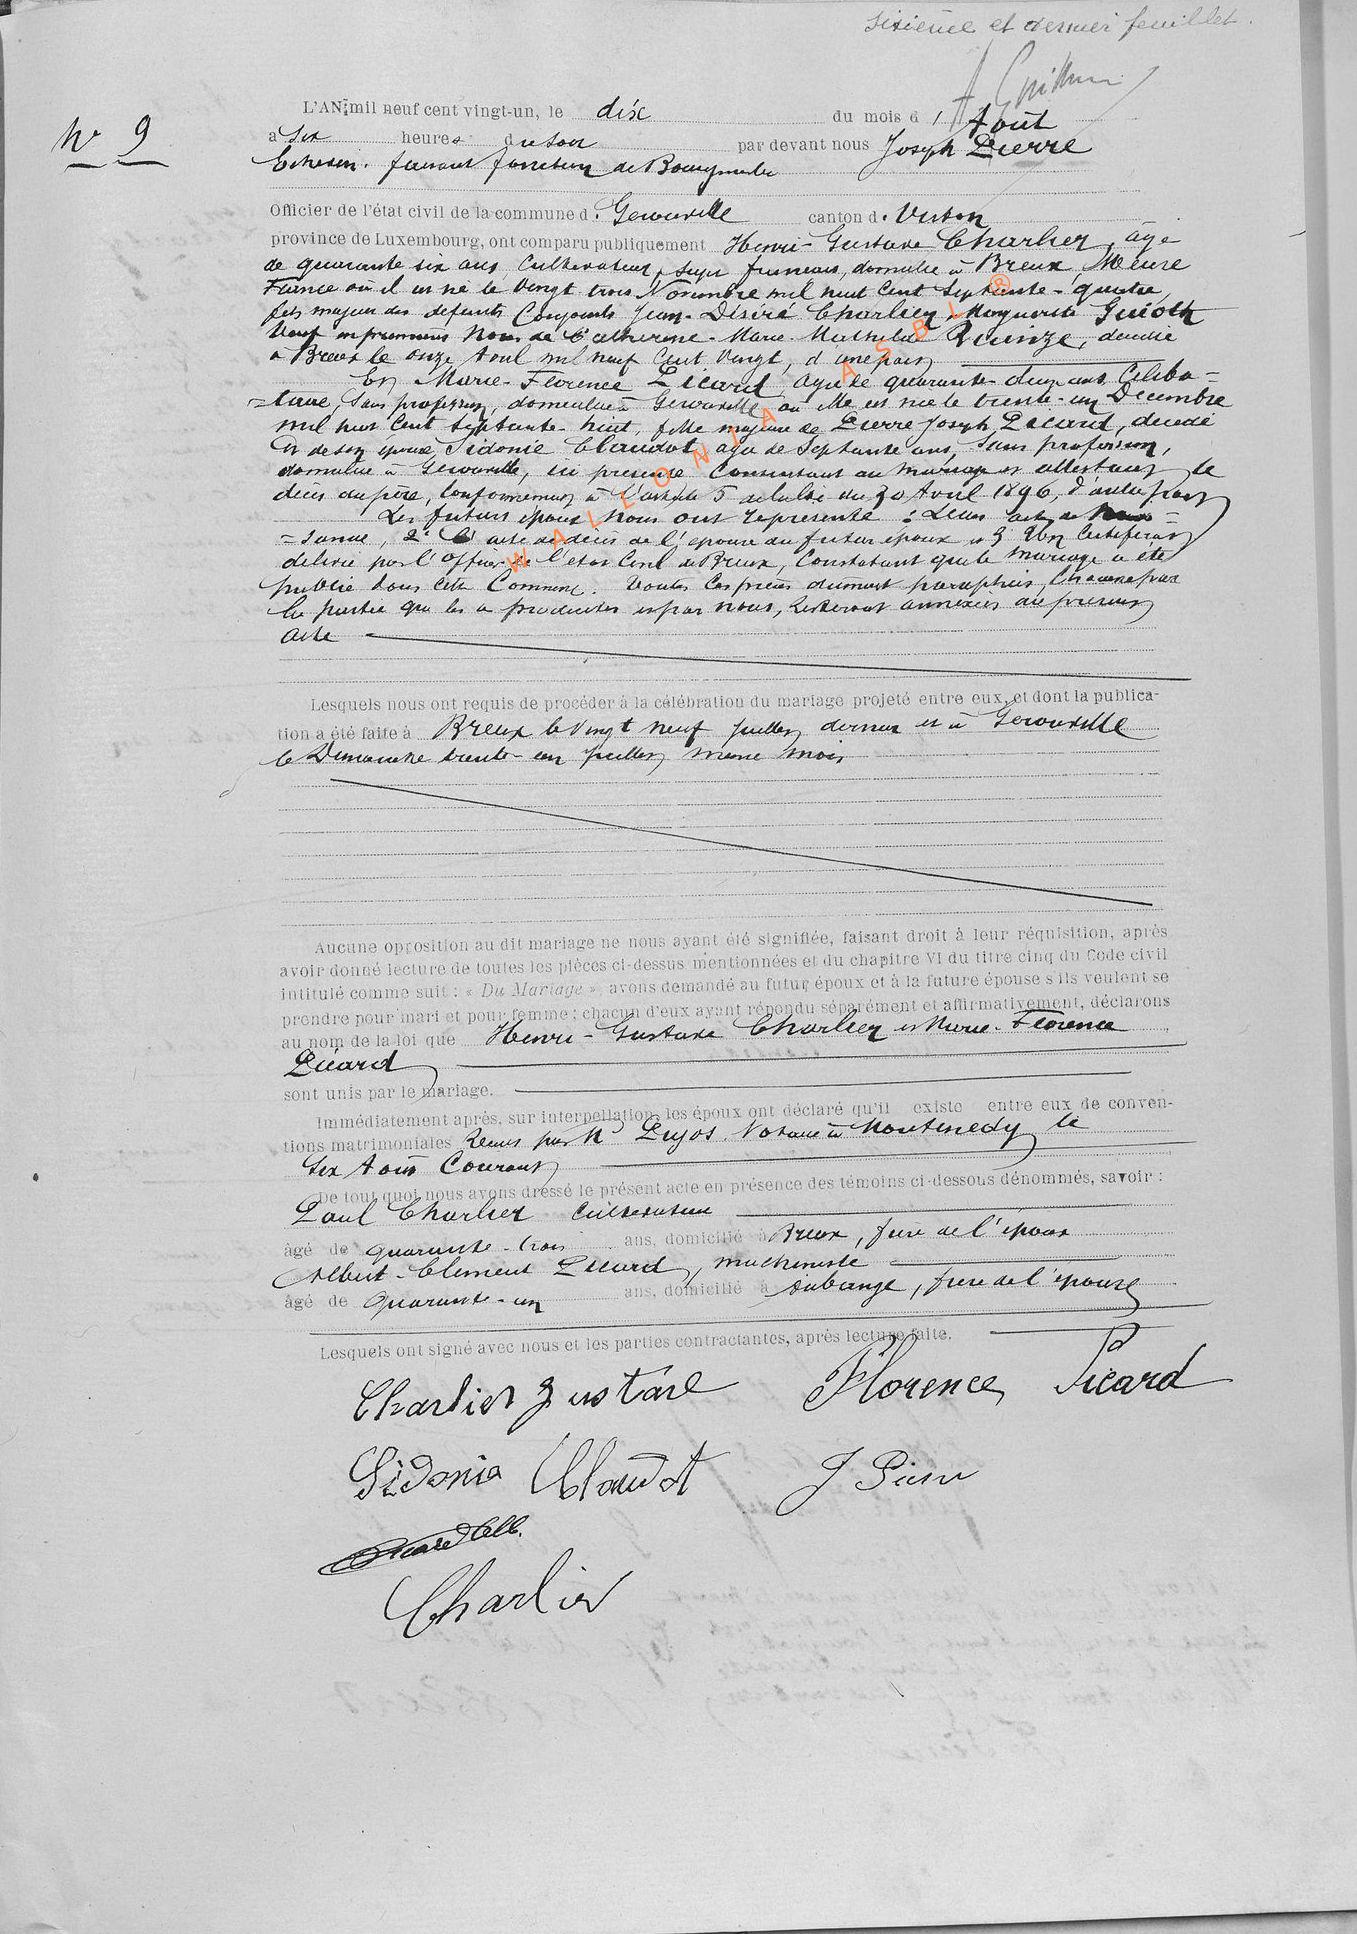 sixième et dernier feuillet.
N° 9
L'AN mil neuf cent vingt-un, le dix du mois d'Août
à six heures du soir par devant nous Joseph Pierre
Echevin. faisant fonction de Bourgmestre
Officier de l'état civil de la commune d. Gerouville canton d. Virton
province de Luxembourg, ont comparu publiquement Henri-Gustave Charlier, âgé
de quarante six ans, Cultivateur, sujet français, domicilié à Breux Meuse
France où il est né le vingt trois Novembre mil huit Cent Septante-quatre,
fils majeur des défunts Conjoints Jean-Désiré Charlier, Marguerite Guioth
Veuf en premières Noces de Catherine-Marie-Mathilde, décédée
à Breux le onze Aoul mil neuf Cent Vingt, d'une part
Et Marie-Florence Picard âgée de quarante-deux ans, Céliba=
=taire, sans profession, domiciliée à Gerouville où elle est née le trente-un Décembre
mil huit Cent septante-huit, fille majeure de Pierre Joseph Picard, décédé
et de son épouse Sidonie Claudot âgée de Septante ans, sans profession,
domiciliée à Gerouville, ici présente Consentant au mariage et attestant le
décès du père, Conformément à l'article 5 de la loi du 30 Avril 1896, d'autre part
Les futurs époux nous ont représenté : Leurs actes de Nais=
=sance, 2° L'acte de décès de l'épouse du futur époux et 3 Un Certificat
délivré par l'Officier de l'état Civil de Breux, Constatant que le mariage a été
publié dans cette Commune. Toutes ces pièces dûment paraphées, Chacune par
la partie qui les a produites et par nous, resteront annexées au présent
acte
WALLONIA ASBL ®
Lesquels nous ont requis de procéder à la célébration du mariage projeté entre eux, et dont la publica-
tion a été faite à Breux le vingt neuf juillet dernier et à Gerouville
le Dimanche trente-un juillet même mois
Aucune opposition au dit mariage ne nous ayant été signifiée, faisant droit à leur réquisition, après
avoir donné lecture de toutes les pièces ci-dessus mentionnées et du chapitre VI du titre cinq du Code civil
intitulé comme suit : « Du Mariage », avons demandé au futur époux et à la future épouse s'ils veulent se
prendre pour mari et pour femme ; chacun d'eux ayant répondu séparément et affirmativement, déclarons
au nom de la loi que Henri-Gustave Charlier et Marie-Florence
Picard
sont unis par le mariage.
Immédiatement après, sur interpellation, les époux ont déclaré qu'il existe entre eux de conven-
tions matrimoniales Reçues par Mr Pujos, Notaire à Montmedy le
Six Août Courant
De tout quoi nous avons dressé le présent acte en présence des témoins ci-dessous dénommés, savoir :
Paul Charlier Cultivateur
âgé de quarante-trois ans, domicilié à Breux, frère de l'époux
Albert-Clément Picard, machiniste
âgé de Quarante-un ans, domicilié à Aubange, frère de l'épouse
Lesquels ont signé avec nous et les parties contractantes, après lecture faite.
Charlier Gustave Florence Picard
Sidonie Claudot J Pierre
Picard Alb.
Charlier